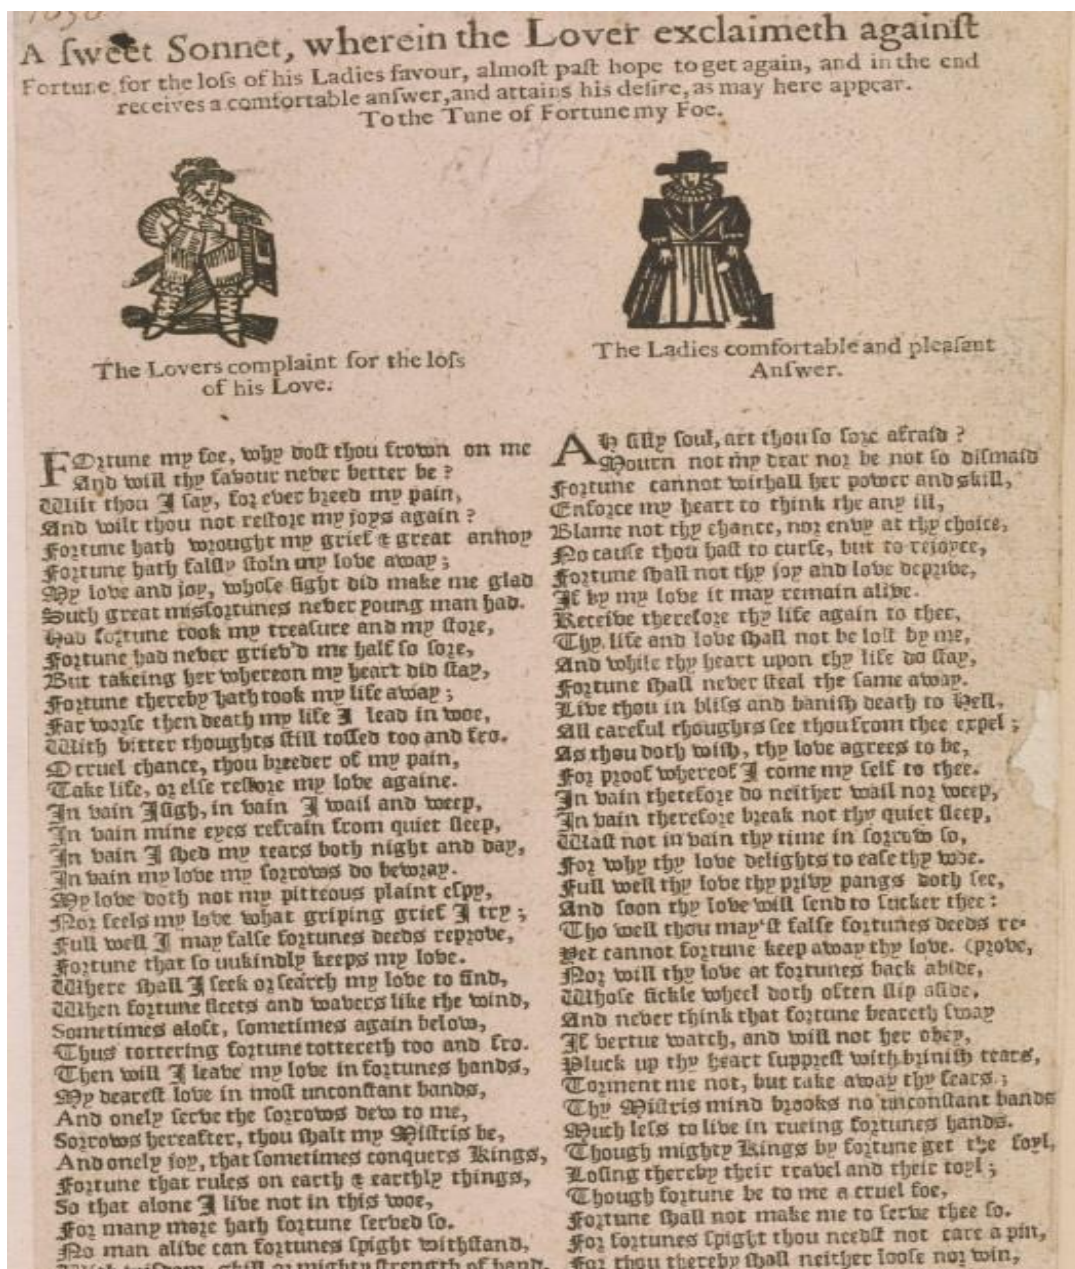 A ſweet Sonnet, wherein the Lover exclaimeth againſt
Fortune for the loſs of his Ladies favour, almoſt paſt hope to get again, and in the end
receives a comfortable anſwer, and attains his deſire, as may here appear.
To the Tune of Fortune my Foe.
The Lovers complaint for the loſs
of his Love.
FOrtune my foe, why doſt thou frown on me
And will thy favour never better be?
Wilt thou I ſay, for ever breed my pain,
And wilt thou not reſtore my joys again?
Fortune hath wrought my grief & great annoy
Fortune hath falſly ſtoln my love away;
My love and joy, whoſe ſight did make me glad
Such great misfortunes never young man had.
Had fortune took my treaſure and my ſtore,
Fortune had never griev'd me half ſo ſore,
But takeing her whereon my heart did ſtay,
Fortune thereby hath took my life away;
Far worſe then death my life I lead in woe,
With bitter thoughts ſtill toſſed too and fro.
O cruel chance, thou breeder of my pain,
Take life, or elſe reſtore my love againe.
In vain I ſigh, in vain I wail and weep,
In vain mine eyes refrain from quiet ſleep,
In vain I ſhed my tears both night and day,
In vain my love my ſorrows do bewray.
My love doth not my pitteous plaint eſpy,
Nor feels my love what griping grief I try;
Full well I may falſe fortunes deeds reprove,
Fortune that ſo uukindly keeps my love.
Where ſhall I ſeek or ſearch my love to find,
When fortune fleets and wavers like the wind,
Sometimes aloft, ſometimes again below,
Thus tottering fortune tottereth too and fro.
Then will I leave my love in fortunes hands,
My deareſt love in moſt unconſtant bands,
And onely ſerve the ſorrows dew to me,
Sorrows hereafter, thou ſhalt my Miſtris be,
And onely joy, that ſometimes conquers Kings,
Fortune that rules on earth & earthly things,
So that alone I live not in this woe,
For many more hath fortune ſerved ſo.
No man alive can fortunes ſpight withſtand,
With wiſdom, ſkill or mighty ſtrength of hand,
The Ladies comfortable and pleaſant
Anſwer.
AH ſilly ſoul, art thou ſo ſore afraid?
Mourn not my dear nor be not ſo diſmaid
Fortune cannot withall her power and skill,
Enforce my heart to think the any ill,
Blame not thy chance, nor envy at thy choice,
No cauſe thou haſt to curſe, but to rejoyce,
Fortune ſhall not thy joy and love deprive,
If by my love it may remain alive.
Receive therefore thy life again to thee,
Thy life and love ſhall not be loſt by me,
And while thy heart upon thy life do ſtay,
Fortune ſhall never ſteal the ſame away.
Live thou in bliſs and baniſh death to Hell,
All careful thoughts ſee thou from thee expel;
As thou doth wiſh, thy love agrees to be,
For proof whereof I come my ſelf to thee.
In vain therefore do neither wail nor weep,
In vain therefore break not thy quiet ſleep,
Waſt not in vain thy time in ſorrow ſo,
For why thy love delights to eaſe thy woe.
Full well thy love thy privy pangs doth ſee,
And ſoon thy love will ſend to ſucker thee:
Tho well thou may'ſt falſe fortunes deeds re-
Yet cannot fortune keep away thy love. (prove,
Nor will thy love at fortunes back abide,
Whoſe fickle wheel doth often ſlip aſide,
And never think that fortune beareth ſway
If vertue watch, and will not her obey,
Pluck up thy heart ſuppreſt with briniſh tears,
Torment me not, but take away thy fears;
Thy Miſtris mind brooks no unconſtant bands
Much leſs to live in rueing fortunes hands.
Though mighty Kings by fortune get the foyl,
Loſing thereby their travel and their toyl;
Though fortune be to me a cruel foe,
Fortune ſhall not make me to ſerve thee ſo.
For fortunes ſpight thou needſt not care a pin,
For thou thereby ſhall neither looſe nor win,